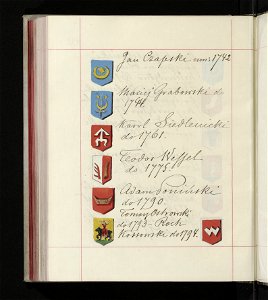 Jan Czapski um. 1742
Maciej Grabowski do
1744.
Karol Siedlnicki
do 1761.
Teodor Wessel
do 1775.
Adam Poniński
do 1790.
Tomasz Ostrowski
do 1793 - Roch
Kossowski do 1794.